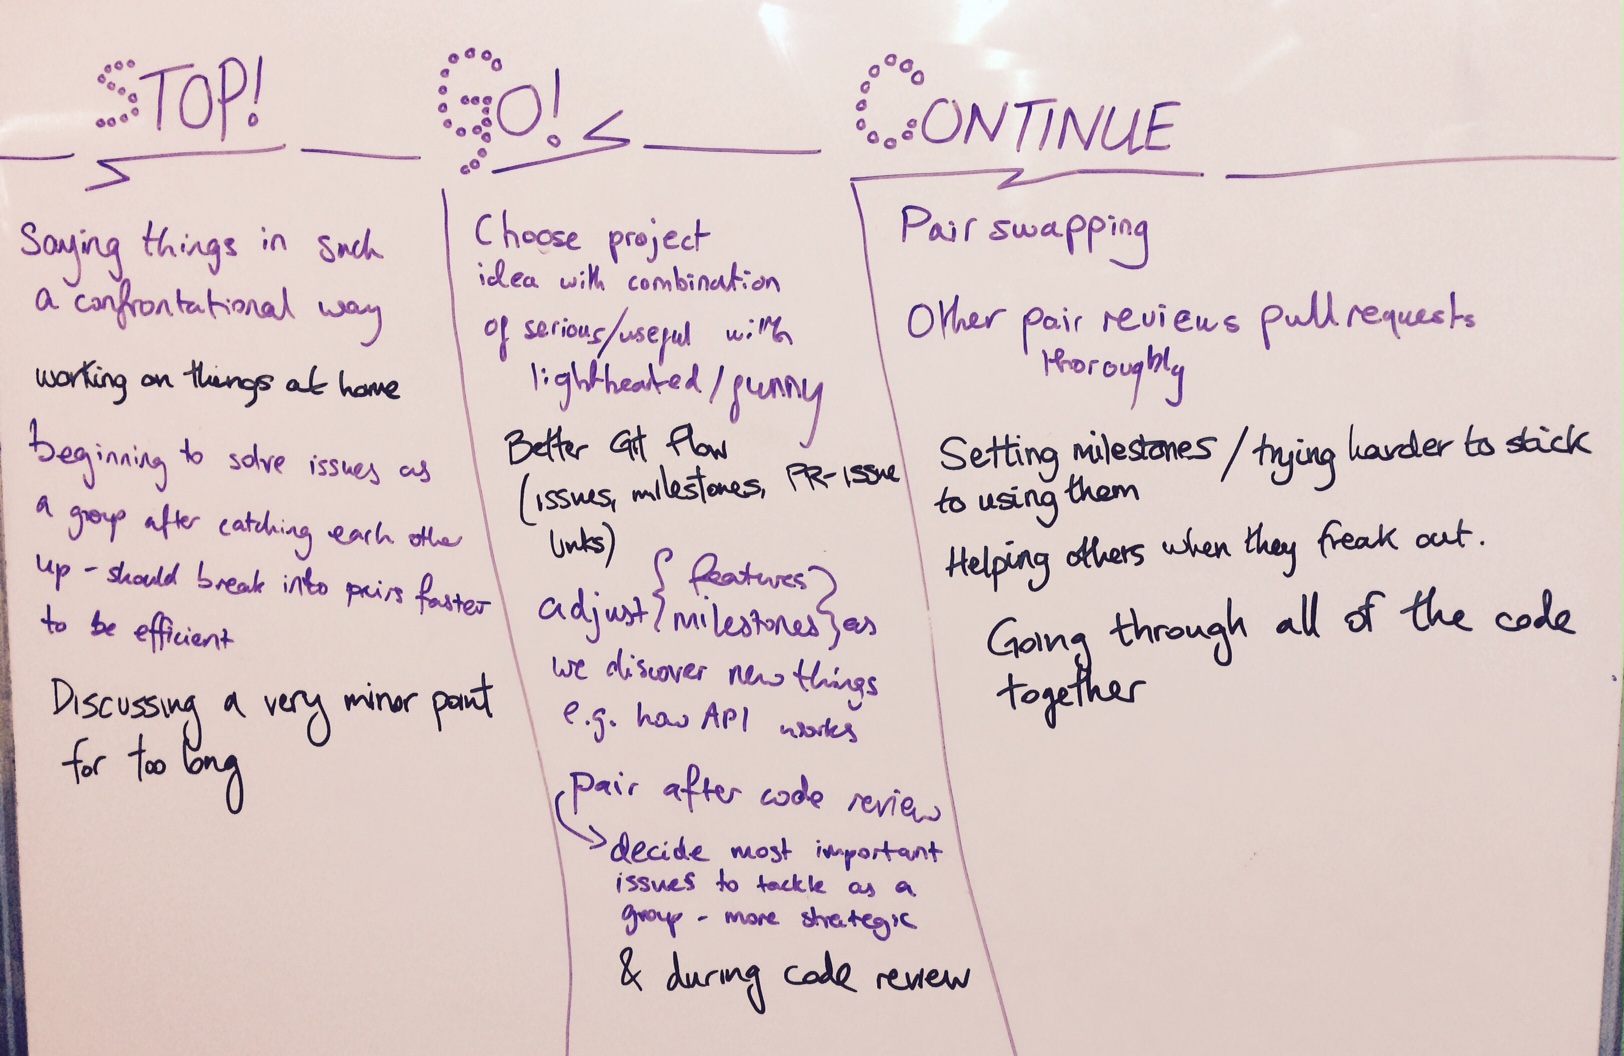 STOP!
Saying things in such
a confrontational way
working on things at home
beginning to solve issues as
a group after catching each other
up - should break into pairs faster
to be efficient
Discussing a very minor point
for too long
GO!
Choose project
idea with combination
of serious/useful with
lighthearted/funny
Better Git Flow
(issues, milestones, PR-issue
links)
{ features }
adjust { milestones } as
we discover new things
e.g. how API works
pair after code review
decide most important
issues to tackle as a
group - more strategic
& during code review
CONTINUE
Pair swapping
Other pair reviews pull requests
thoroughly
Setting milestones / trying harder to stick
to using them
Helping others when they freak out.
Going through all of the code
together